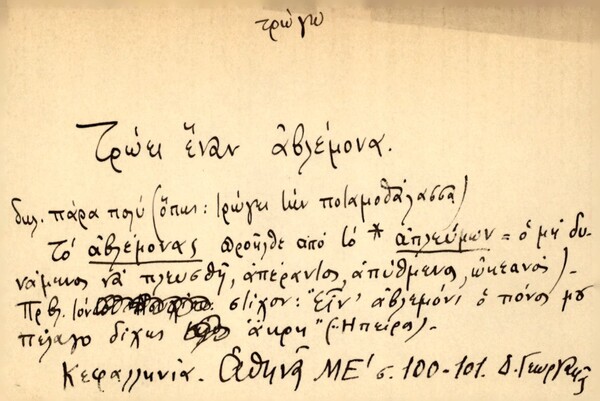 τρώγω
Τρώει ἕναν ἀβλέμονα.
δηλ. πάρα πολύ (ὅπως: τρώγει τὴν ποταμοθάλασσα)
Τό ἀβλέμονας προῆλθε από τό * ἀπλεύμων = ὁ μή δυ-
νάμενος νά πλευσθῇ, ἀπέραντος, ἀπύθμενος, ὠκεανός).
Πρβλ. τόν στίχον: "Εἶν' ἀβλεμόνι ὁ πόνος μου
πέλαγο δίχως ἄκρη" (Ἤπειρος).
Κεφαλληνία. Ἀθηνᾶ ΜΕ' σ. 100-101. Δ. Γεωργακᾶς